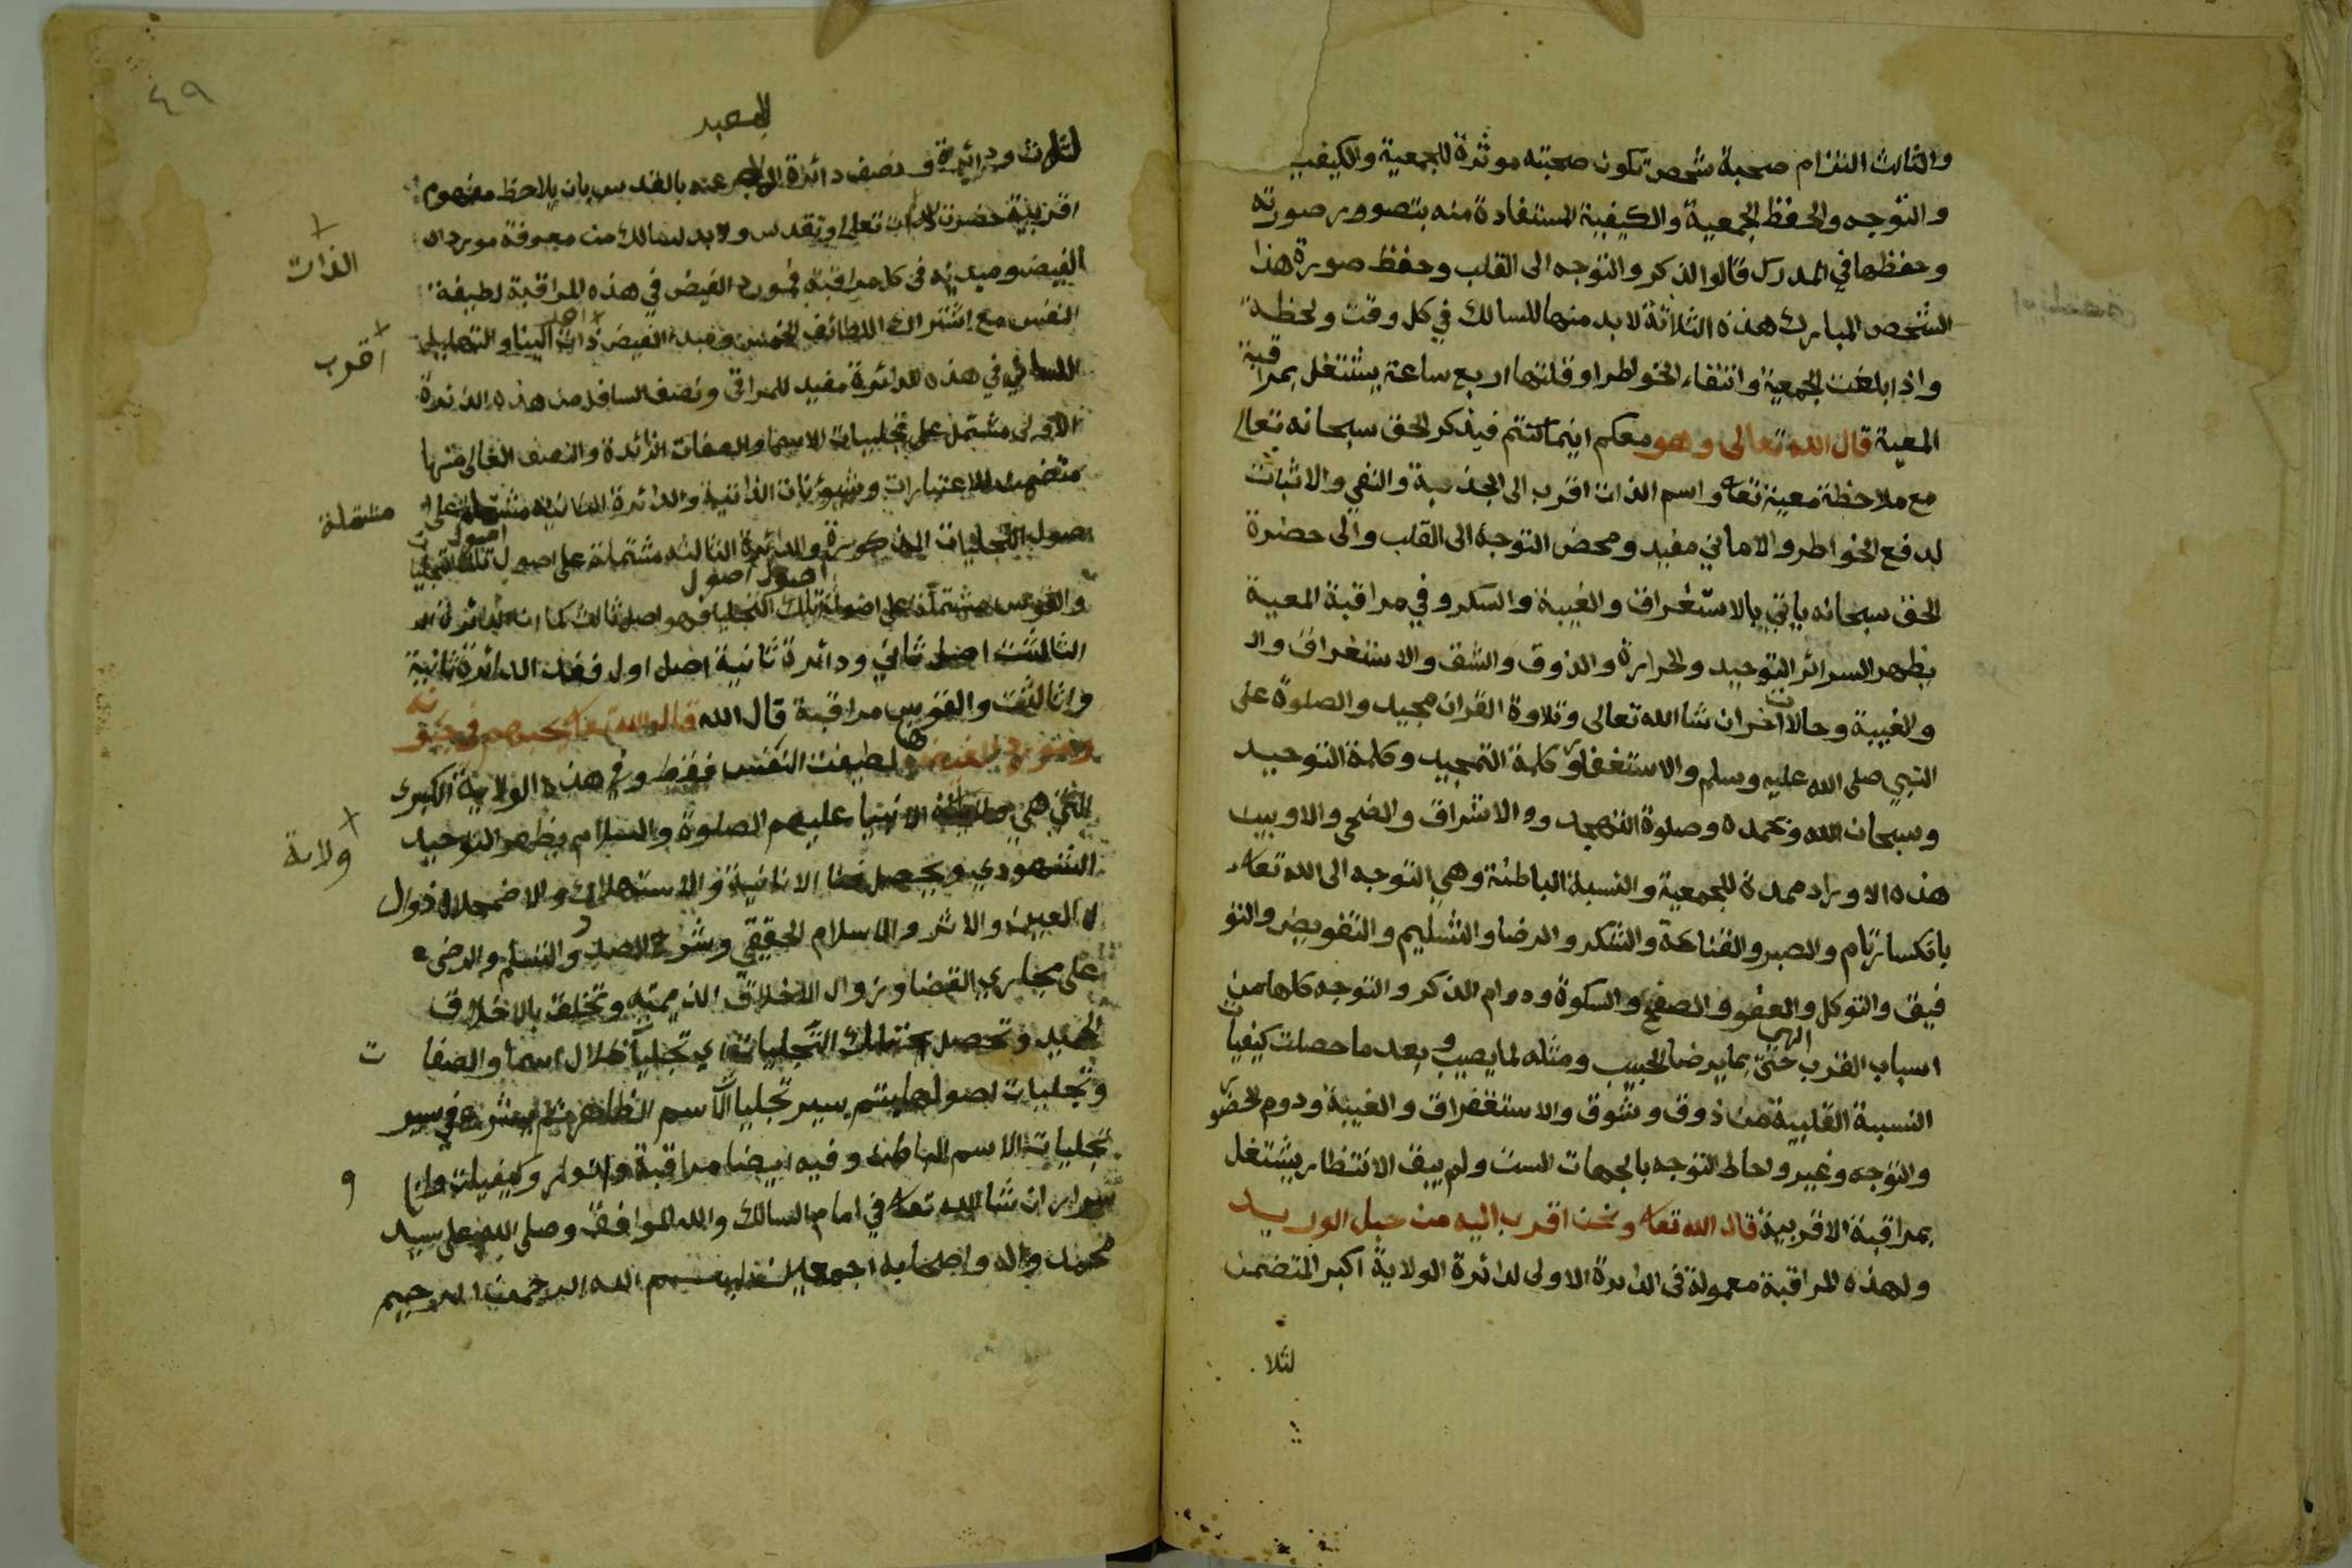 والثالث التزام صحبة شخص تكون صحبته موثرة للجمعية والكيفيب
والتوجه والحفظ الجمعية والكيفية المستفادة منه بتصوور صورته
وحفظها في المدرك قالوا الذكر والتوجه الى القلب وحفظ صورة هذا
الشخص المبارك هذه الثلاثة لابد منها للسالك في كل وقت ولحظة
واذا بلغت الجمعية وانتفاء الخواطر اوقلتها اربع ساعة يشتغل بمراقبة
المعية قال الله تعالى وهو معكم اينما كنتم فيذكر الحق سبحانه تعالى
مع ملاحظة معية تعا واسم الذات اقرب الى الجذبة والنفي والاثبات
لدفع الخواطر والاماني مفيد ومحض التوجه الى القلب والى حضرة
الحق سبحانه ياتي بالاستغراق والغيبة والسكر وفي مراقبة المعية
يظهر السرائر التوحيد والحرارة والذوق والشق والاستغراق وال
والغيبة وحالات اخر ان شا الله تعالى وتلاوة القران مجيد والصلوة على
النبي صلى الله عليه وسلم والاستغفار وكلمة التمجيد وكلمة التوحيد
وسبحان الله وبحمده وصلوة التهجد وو الاشراق والضحى والاوبين
هذه الاوراد ممدة للجمعية والنسبة الباطنة وهي التوجه الى الله تعا
بانكسار تام والصبر والقناعة والشكر والرضا والتسليم والتفويض والتو
فيق والتوكل والعفو والصفح والسكوة ودوام الذكر والتوجه كلها من
الهي
اسباب القرب حتى بما يرضا الحبيب ومثله لما يصيب وبعد ما حصلت كيفيات
النسبة القلبية من ذوق وشوق والاستغفراق والغيبة ودوم الحضو
والتوجه وغير ولحاط التوجه بالجهات الست ولم يبق الانتظار يشتغل
بمراقبة الاقربية قال الله تعا ونحن اقرب اليه من حبل الوريد
ولهذه المراقبة معمولة فى الدائرة الاولى لدائرة الولاية اكبر المتضمن
لثلا
٤٩
لثلاث ودائرة ونصف دائرة عنه بالقدس بان يلاحظ مفهوم
اقربية حضرت الذات تعلى وتقدس ولابد لسالك من معرفة مورد ال
الذات
الفيض ومبدئه في كل مراقبة فمورد الفيض في هذه المراقبة لطيفة
النفس مع اشتراك اللطائف الخمس ومبدء الفيض ذات الينا والتهليل
اقرب
اللساني في هذه الدائرة مفيد للمراقى ونصف السافل من هذه الدائرة
الاولى مشتمل على تجليات الاسما والصفات الزائدة والنصف العالى منها
متضمن للاعتبارات وشيؤنات الذاتية والدائرة الثانية مشتملة على
مشتملة
اصول التجليات المذكورة والدائرة الثالثة مشتملة على اصول تلك التجليا
اصول
اصول اصول
والقوس مشتملة على تلك التجليا فهو اصل ثالث كما ان الدائرة ال
الثالثت اصل ثاني ودائرة ثانية اصل اول ففى الدائرة ثانية
واثالثت والقوس مراقبة قال الله قال الله تعا يحبهم ويحبونه
ومورد الفيض لطيفت النفس فقط وفي هذه الولاية الكبرى
التي هي الانبيأ عليهم الصلوة والسلام يظهر التوحيد
ولاىة
الشهودي ويحصل فنا الانانية والاستهلاك والاضمحلال وزوال
العين والاثر والاسلام الحقيقي وشرح الصدر والتسلم والرضى
على مجاري القضا وزوال الاخلاق الذميمة وتخلق بالاخلاق
الحميد وتحصل تلك التجليات اي تجليات ظلال اسما والصفا
ت
وتجليات اصولها يتم سير تجليات الاسم الظاهر ثم يشرع في سير
تجليات الاسم الباطن وفيه ايضا مراقبة وانوار وكيفيات وا
و
سرار ان شا الله تعا في امام السالك والله الموافق وصلى الله على سيد
محمد واله واصحابه اجمعين بسم الله الرحمن الرحيم